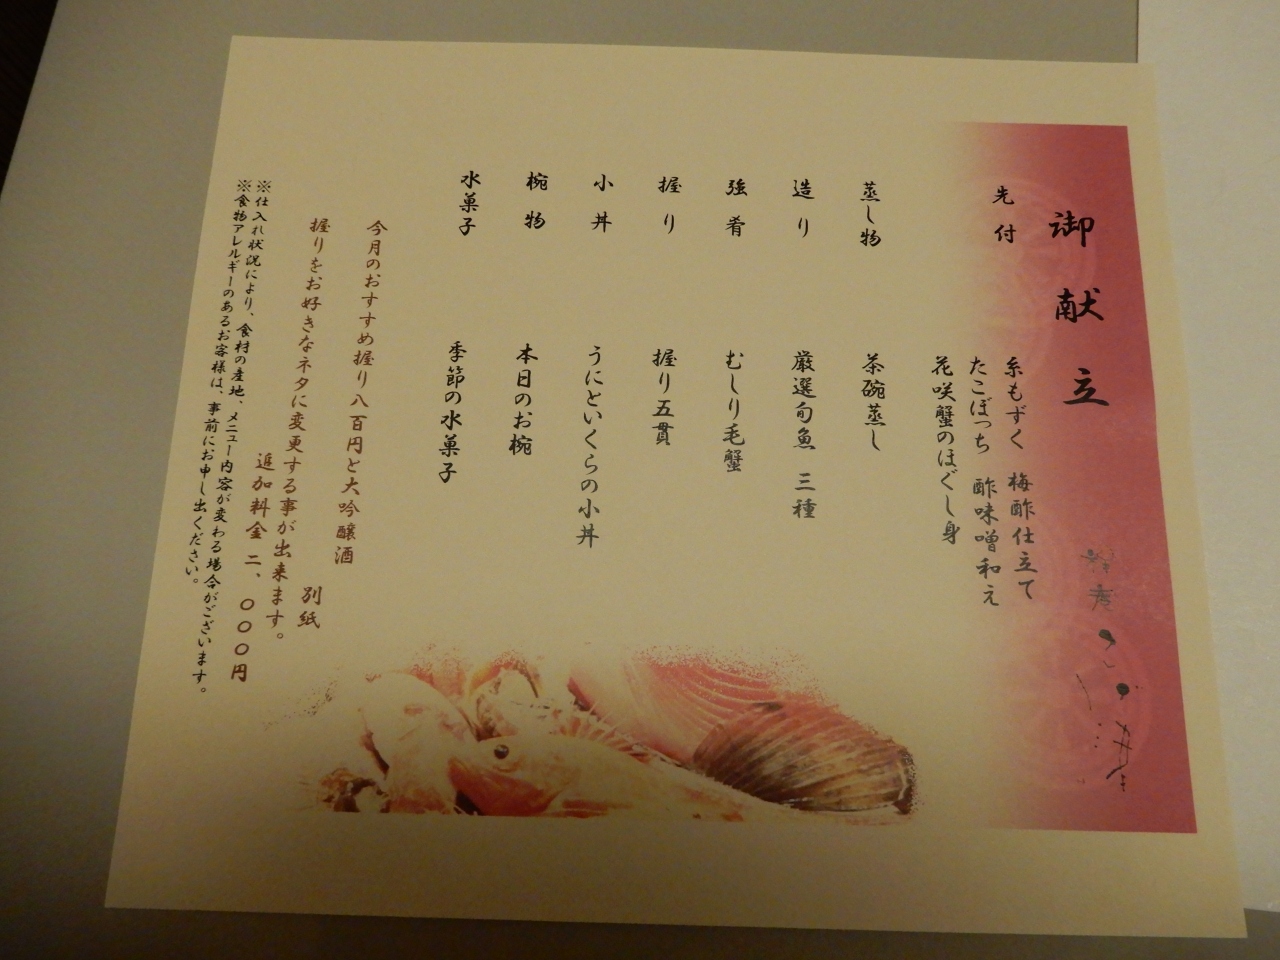 御献立
先付
糸もずく 梅酢仕立て
たこぼっち 酢味噌和え
花咲蟹のほぐし身
蒸し物 茶碗蒸し
造り 厳選旬魚 三種
強肴 むしり毛蟹
握り 握り五貫
小丼 うにといくらの小丼
椀物 本日のお椀
水菓子 季節の水菓子
今月のおすすめ握り八百円と大吟醸酒 別紙
握りをお好きなネタに変更する事が出来ます。
追加料金 二、〇〇〇円
※仕入れ状況により、食材の産地、メニュー内容が変わる場合がございます。
※食物アレルギーのあるお客様は、事前にお申し出ください。